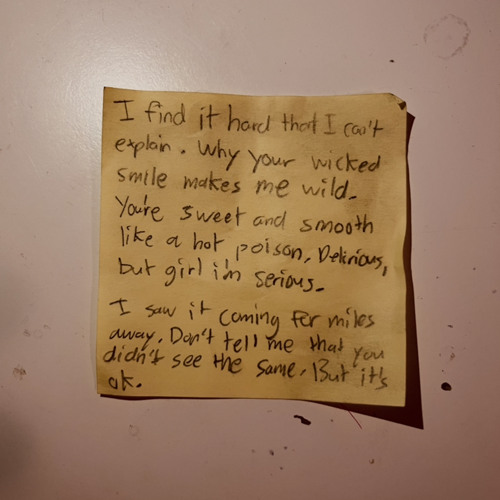 I find it hard that I can't
explain. Why your wicked
smile makes me wild.
You're sweet and smooth
like a hot poison, Delirious,
but girl i'm serious.
I saw it coming for miles
away. Don't tell me that you
didn't see the same. But it's
ok.